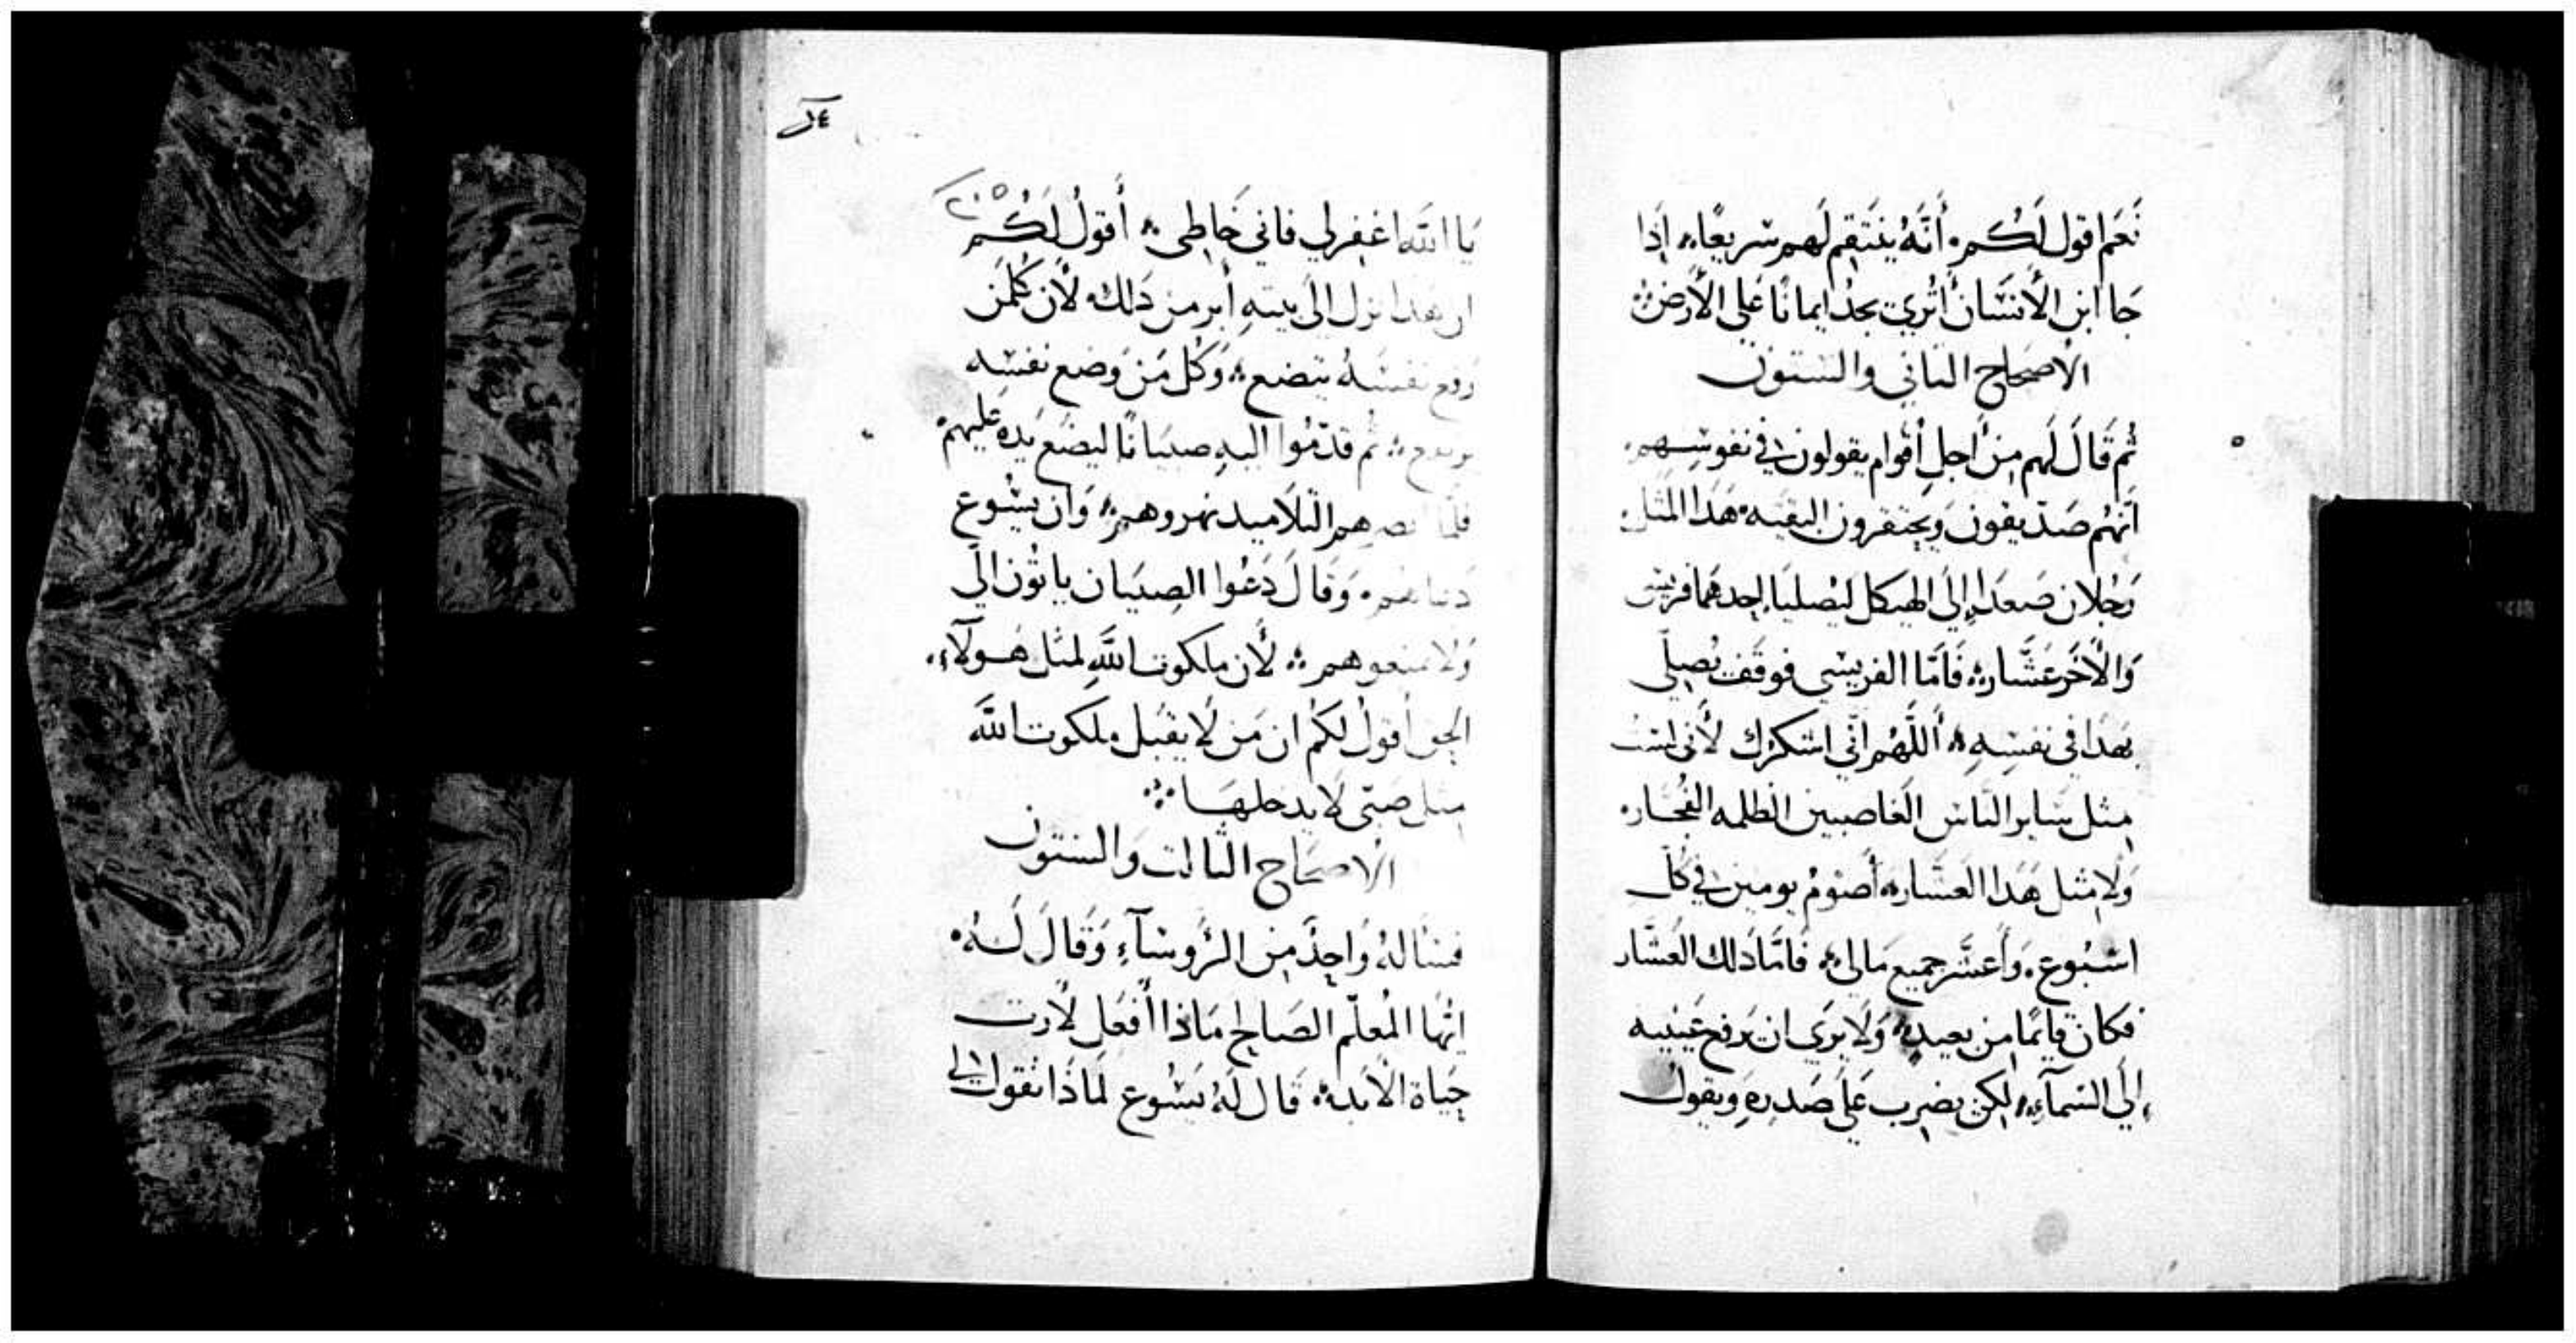 نَعَم اقول لَكُم. أَنَّهُ يَنتَقِم لَهم سَريعًا؞ اِذَا
جَا ابن الأنسَان أَتُرى يَجدُ ايمانًا عَلي الأرض؞
الاصحَاح التاني والستون
ثُم قَالَ لَهم مِن أجل أقوام يقولون في نفوسهم.
أنهُم صَدّيقون وَيحتقرون البقيه. هَدَا المَثل.
رَجُلان صَعدَا إِلَي الهيكل ليُصليَا إحدهمَا فريسي
وَالأخَر عَشَّار؞ فَأمَّا الفريسي فوقَف يُصلّي
بهَدَا في نفسِهِ؞ أللَّهُم انّي اشكرك لأني لست
مِثل سَاير النَاس الغَاصبين الظلمه الفُجَّار.
وَلا مِثل هَدَا العَشَّار؞ أصُومُ يومين في كل
اسبُوع. وَأعشّر جميع مَالي؞ فَأمَّا دَلك العَشَّار
فكان قايمًا من بعيدٍ؞ وَلا يَرَى ان يَرفع عَينيه
إِلَى السَمآءِ؞ لكن يضرب عَلَى صَدرِهِ وَيقول
٢٠٥
يَا اللَّه اغفر لي فاني خَاطِي؞ أقولُ لَكُم
ان هدا نزل الَى بيتهِ أبر من دَلك. لأن كُلمَن
رفع نفسَهُ يتضع؞ وَكُل مَن وَضع نفسه
يرتفع؞ ثُم قدّمُوا اليهِ صبيَانًا ليضَع يَده عَليهمْ
فلمَّا ابصرهم التلاميد نهروهم؞ وَان يَسُوع
دعَاهم. وَقَالَ دَعُوا الصِبيَان يَاتُون الَي
وَلا تمنعوهم؞ لأن ملكوت اللَّهِ لمثل هَولآءِ.
الحَق أقولُ لكُم ان مَن لا يقبَل ملكوت اللَّه
مِثل صَبي لا يدخلهَا؞
الاصحَاح التالت وَالستون
فسَالهُ وَاحِدٌ مِن الرُوسَآءِ وَقَالَ لَهُ.
ايُّهَا المُعلّم الصَالح مَاذا أفعَل لأرت
حَيَاة الأبَد؞ قَالَ لَهُ يَسُوع لمَاذَا تقول لي